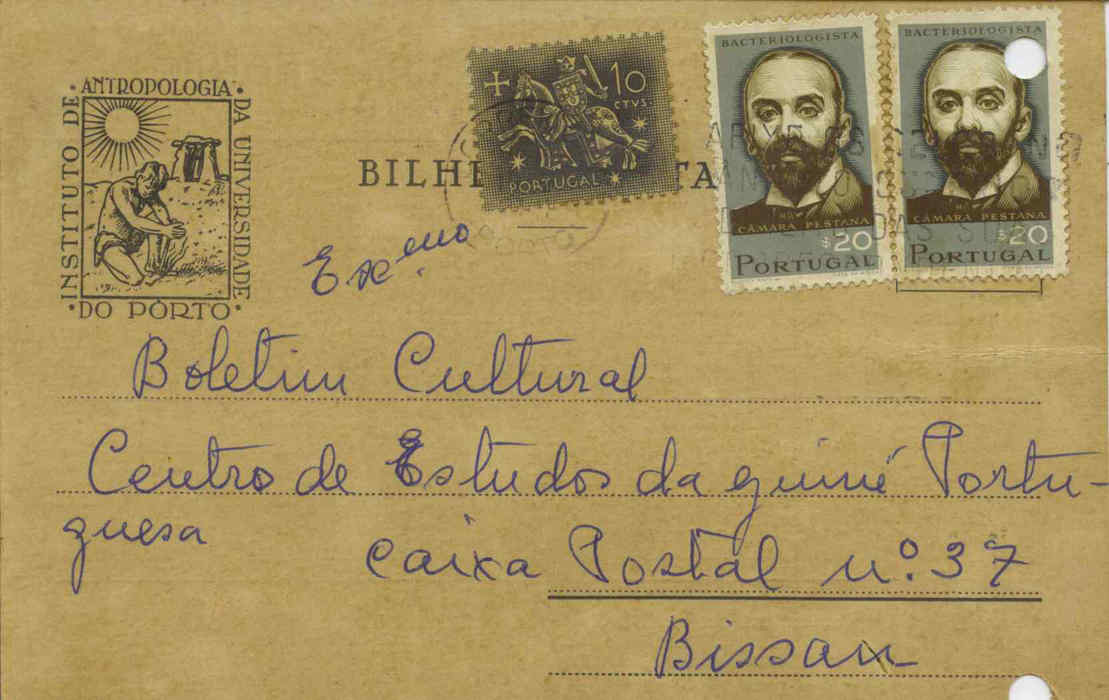 INSTITUTO DE ANTROPOLOGIA DA UNIVERSIDADE DO PÔRTO
10
CTVS.
PORTUGAL
BACTERIOLOGISTA
CÂMARA PESTANA
$20
PORTUGAL
BACTERIOLOGISTA
CÂMARA PESTANA
$20
PORTUGAL
BILHE TA
PORTO
Ex.mo
Boletim Cultural
Centro de Estudos da guiné Portu-
guesa
Caixa Postal nº. 37
Bissau